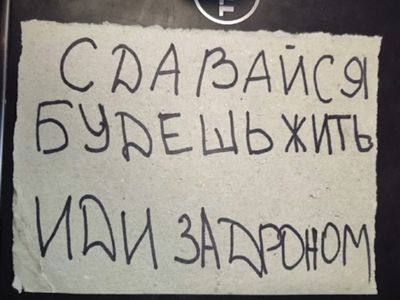 СДАВАЙСЯ
БУДЕШЬ ЖИТЬ
ИДИ ЗА ДРОНОМ